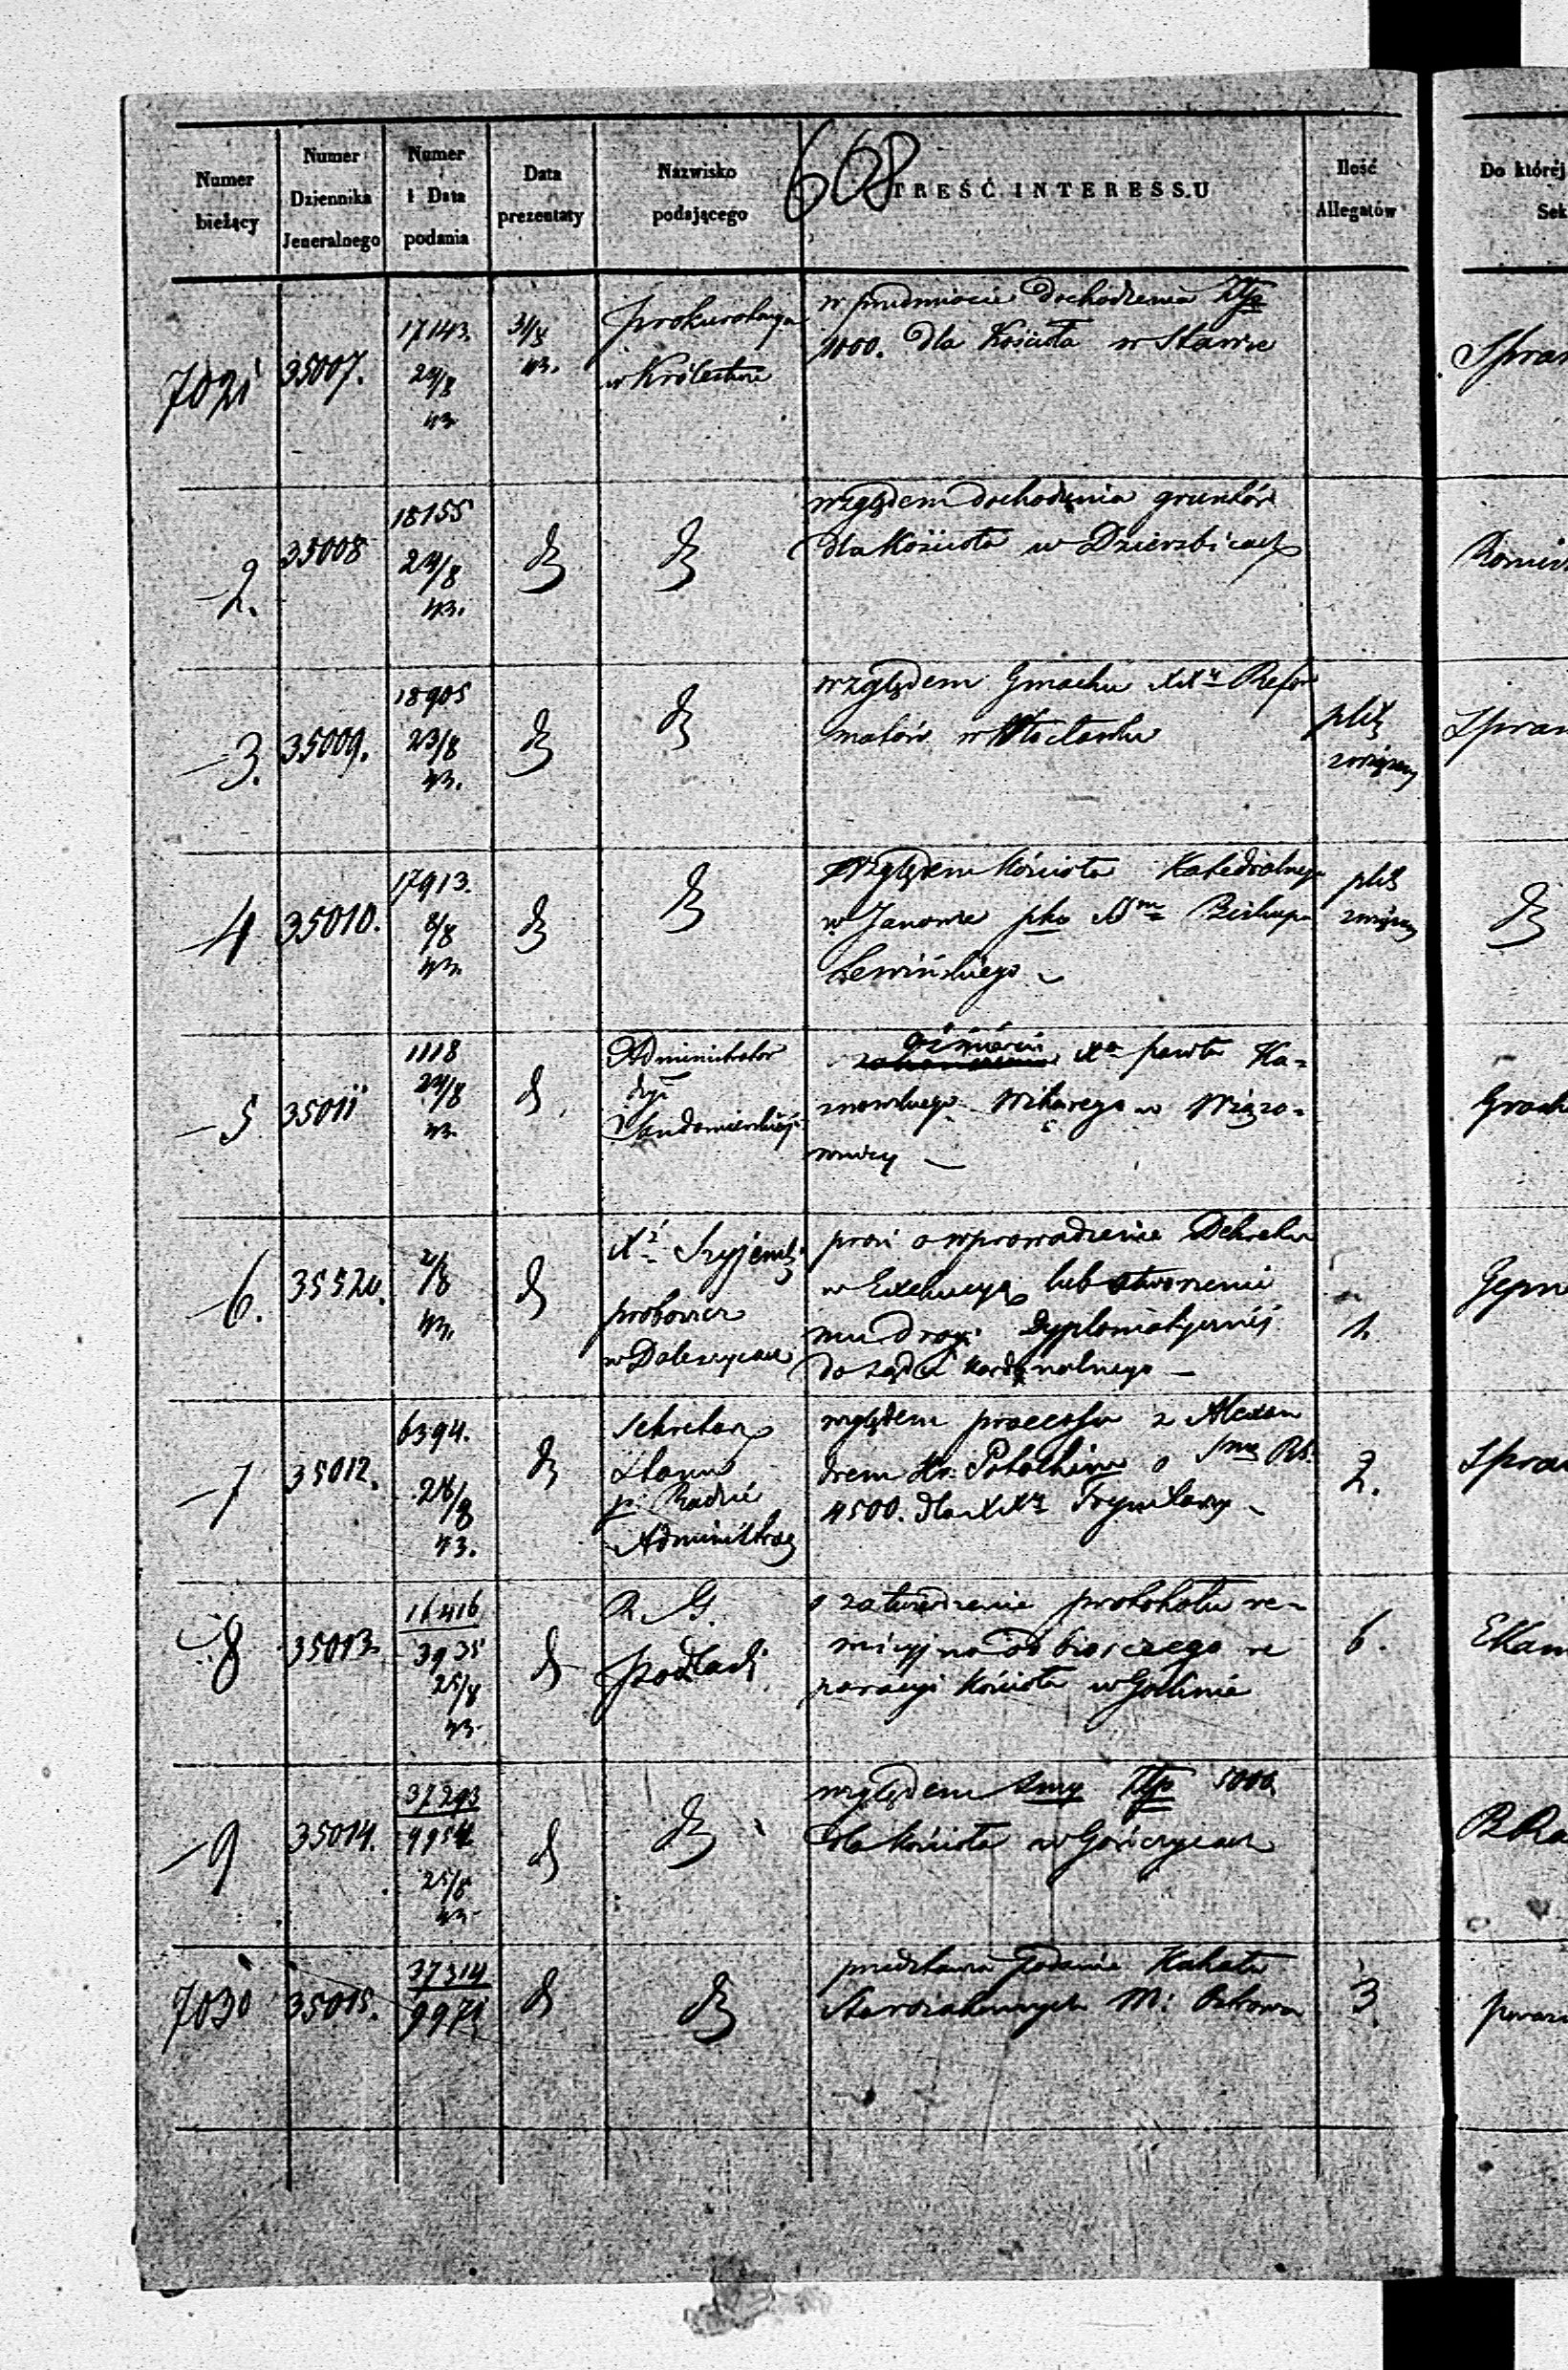 608
Numer bieżący
Numer Dziennika Jeneralnego
Numer i Data podania
Data prezentaty
Nazwisko podającego
TREŚĆ INTERESSU
Ilość Allegatów
Do której
Sek
7021 35007. 17143. 24/8 43 31/8 43. Prokuratorya
w Królestwie
w przedmiocie dochodzenia Złp
1000. dla Kościoła w Stawie
Spraw
-2. 35008 18155 24/8 43. dt dt
względem dochodzenia gruntów
dla Kościoła w Dzierzbicach
-3. 35009. 18905 23/8 43. dt dt
względem Gmachu XXy Refor
matów w Włocławku
plik
związany
Spraw
-4 35010. 17913. 8/8 43. dt dt
względem Kościoła Katedralnego
w Janowie pko Biskupa
Lewińskiego
plik
związany
dt
-5 35011 1118 24/8 43. dt
Administrator
Dyi
Sandomierskiej
o śmierci Xa Pawła Ka-
znowskiego Wikarego w Wiązo-
wnicy
-6. 35520. 2/8 43. dt
Xz Szyjewski
proboszcz
w Daleszycach
prosi o wprowadzenie Dekretu
w Exekucyą lub otworzenie
mu drogi Dyplomatycznéj
do sądu
1.
-7 35012. 6394. 28/8 43. dt
Sekretarz
Stanu
p. Radzie
Administrac
względem processu z Alexan
drem Hr. Potockim o Smę RS.
4500. dla XXy Trynitarzy
2.
Spraw
-8 35013. 16416 3935 25/8 43. dt
R. G.
Podlaski
o zatwierdzenie protokołu re-
wizyjno odbiorczego re
paracyi Kościoła w
6.
-9 35014. 37293 9954 25/8 43. dt dt
względem Smy Złp 5000.
dla Kościoła w Gończycach
7030 35015. 37314 9971 dt dt
przedstawia podanie Kahału
Starozakonnych M: Ostrowa
3